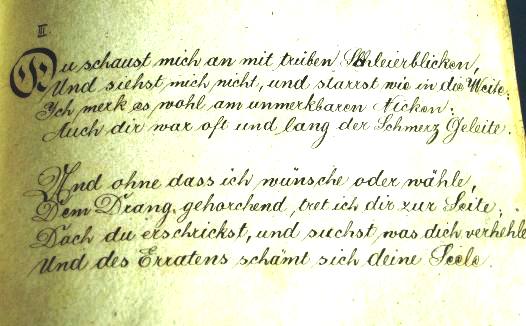 III.
Du schaust mich an mit trüben Schleierblicken,
Und siehst mich nicht, und starrst wie in die Weite:
Ich merk es wohl am unmerkbaren Nicken:
Auch dir war oft und lang der Schmerz Geleite.
Und ohne dass ich wünsche oder wähle,
Dem Drang gehorchend, tret ich dir zur Seite;
Doch du erschrickst, und suchst was dich verhehle
Und des Erratens schämt sich deine Seele.